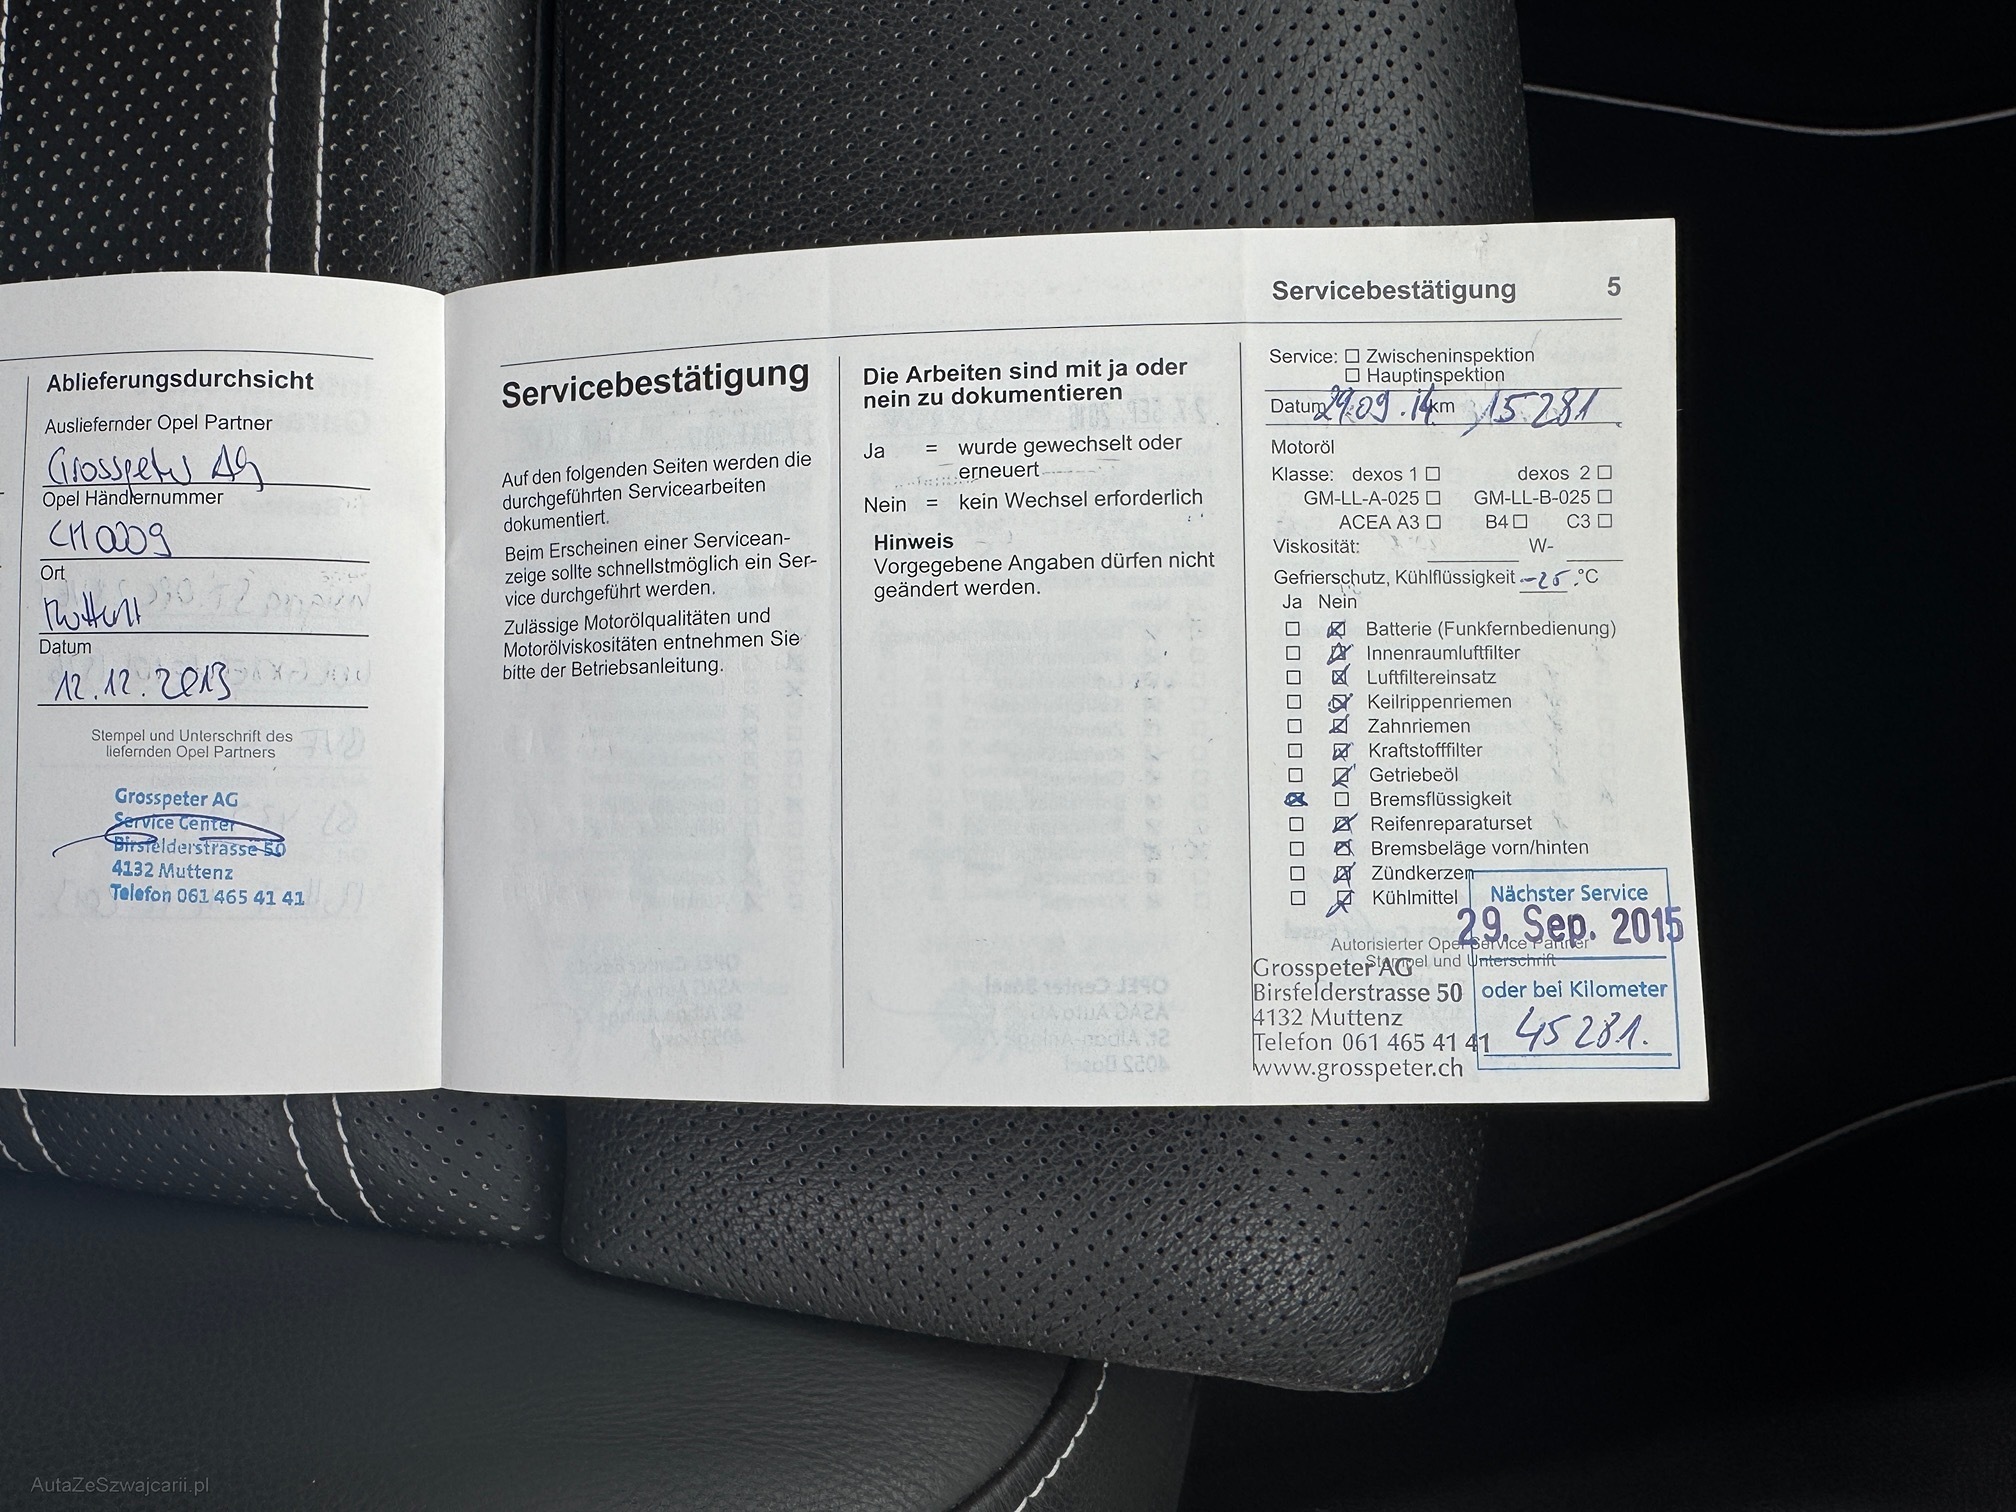 Ablieferungsdurchsicht
Ausliefernder Opel Partner
Grosspeter AG
Opel Händlernummer
CH0009
Ort
Muttenz
Datum
12.12.2013
Stempel und Unterschrift des
liefernden Opel Partners
Grosspeter AG
Service Center
Birsfelderstrasse 50
4132 Muttenz
Telefon 061 465 41 41
Servicebestätigung
Auf den folgenden Seiten werden die
durchgeführten Servicearbeiten
dokumentiert.
Beim Erscheinen einer Servicean-
zeige sollte schnellstmöglich ein Ser-
vice durchgeführt werden.
Zulässige Motorölqualitäten und
Motorölviskositäten entnehmen Sie
bitte der Betriebsanleitung.
Die Arbeiten sind mit ja oder
nein zu dokumentieren
Ja = wurde gewechselt oder
erneuert
Nein = kein Wechsel erforderlich
Hinweis
Vorgegebene Angaben dürfen nicht
geändert werden.
Servicebestätigung 5
Service: Zwischeninspektion
Hauptinspektion
Datum 29.09.14 km 15281
Motoröl
Klasse: dexos 1 dexos 2
GM-LL-A-025 GM-LL-B-025
ACEA A3 B4 C3
Viskosität: W-
Gefrierschutz, Kühlflüssigkeit -25 °C
Ja Nein
Batterie (Funkfernbedienung)
Innenraumluftfilter
Luftfiltereinsatz
Keilrippenriemen
Zahnriemen
Kraftstofffilter
Getriebeöl
Bremsflüssigkeit
Reifenreparaturset
Bremsbeläge vorn/hinten
Zündkerzen
Kühlmittel
Autorisierter Opel Service Partner
Stempel und Unterschrift
Grosspeter AG
Birsfelderstrasse 50
4132 Muttenz
Telefon 061 465 41 41
www.grosspeter.ch
Nächster Service
29. Sep. 2015
oder bei Kilometer
45281.
AutaZeSzwajcarii.pl